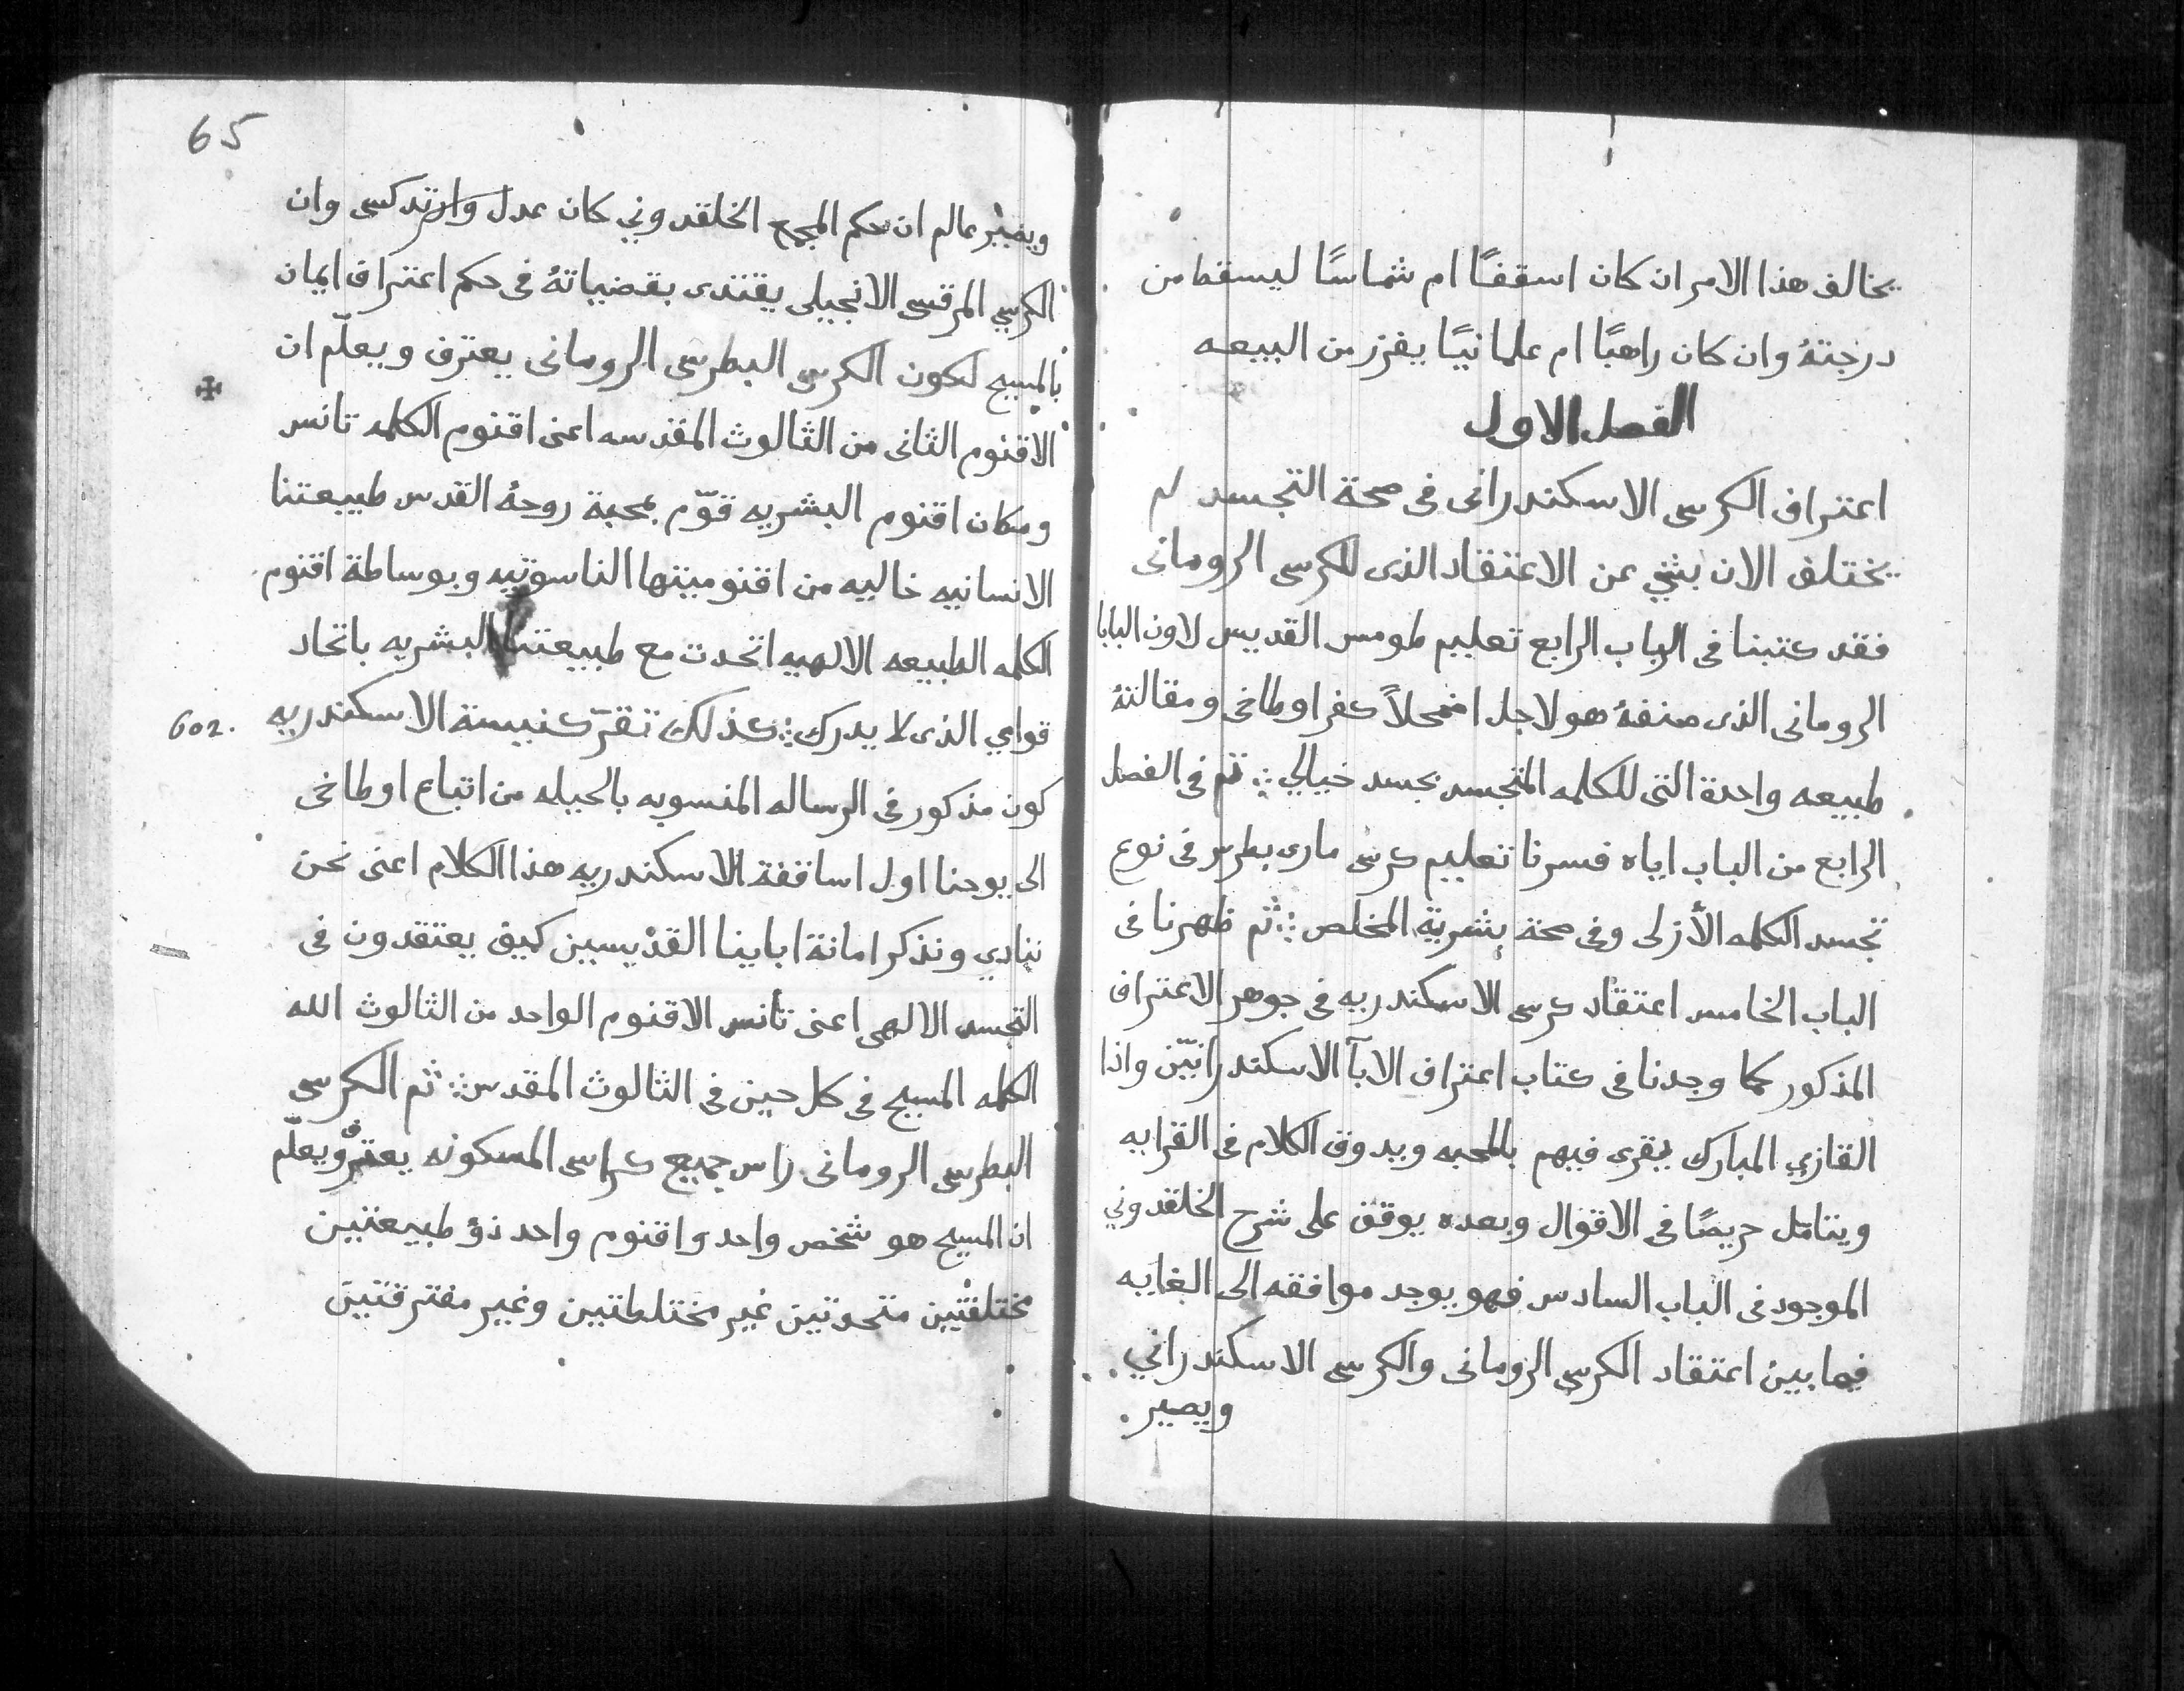 يخالف هذا الامر ان كان اسقفًا ام شماسًا ليسقط من
درجتهُ وان كان راهبًا ام علمانيًا يفرز من البيعه
الفصل الاول
اعتراف الكرسى الاسكندرانى فى صحة التجسد لم
يختلف الان بشي عن الاعتقاد الذى للكرسى الرومانى
فقد كتبنا فى الباب الرابع تعليم طومس القديس لاون البابا
الرومانى الذى صنفهُ هو لاجل اضمحلاً كفر اوطاخى ومقالتهُ
طبيعه واحدة التى للكلمه المتجسد بجسد خيالي ⁘ ثم فى الفصل
الرابع من الباب اياه فسرنا تعليم كرسى مارى بطرس فى نوع
تجسد الكلمه الأزلى وفى صحة بشرية المخلص ⁘ ثم ظهرنا فى
الباب الخامس اعتقاد كرسى الاسكندريه فى جوهر الاعتراف
المذكور كما وجدنا فى كتاب اعتراف الابآ الاسكندرانيّن واذا
القازي المبارك يقرى فيهم بالمحبه ويدوق الكلام فى القرايه
ويتامّل حريصًا فى الاقوال وبعده يوقف على شرح الخلقدوني
الموجود فى الباب السادس فهو يوجد موافقه الى الغايه
فيما بين اعتقاد الكرسى الرومانى والكرسى الاسكندراني
ويصير
65
ويصير عالم ان حكم المجمع الخلقدوني كان عدل وارتدكسى وان
الكرسي المرقسى الانجيلى يقتدى بقضياتهُ فى حكم اعتراف ايمان
بالمسيح لكون الكرسى البطرسى الرومانى يعترف ويعلّم ان
✠
الاقنوم الثانى من الثالوث المقدسه اعنى اقنوم الكلمه تانس
ومكان اقنوم البشريه قوّم بمحبة روحهُ القدس طبيعتنا
الانسانيه خاليه من اقنوميتها الناسوتيه وبوساطة اقنوم
الكلمه الطبيعه الالهيه اتحدت مع طبيعتنا البشريه باتحاد
قوامي الذى لا يدرك ⁘ كذلك تقرّ كنيسة الاسكندريه
602.
كون مذكور فى الرساله المنسوبه بالحيله من اتباع اوطاخى
الى يوحنا اول اساقفة الاسكندريه هذا الكلام اعنى نحن
ننادي ونذكر امانة اباينا القدّيسين كيف يعتقدون فى
التجسد الالهى اعنى تأنس الاقنوم الواحد من الثالوث الله
الكلمه المسيح فى كل حين فى الثالوث المقدس ⁘ ثم الكرسى
البطرسى الرومانى راس جميع كراسى المسكونه يعترف ويعلّم
ان المسيح هو شخص واحد واقنوم واحد ذؤ طبيعتين
مختلفتين متحدتين غير مختلطتين وغير مفترقتين